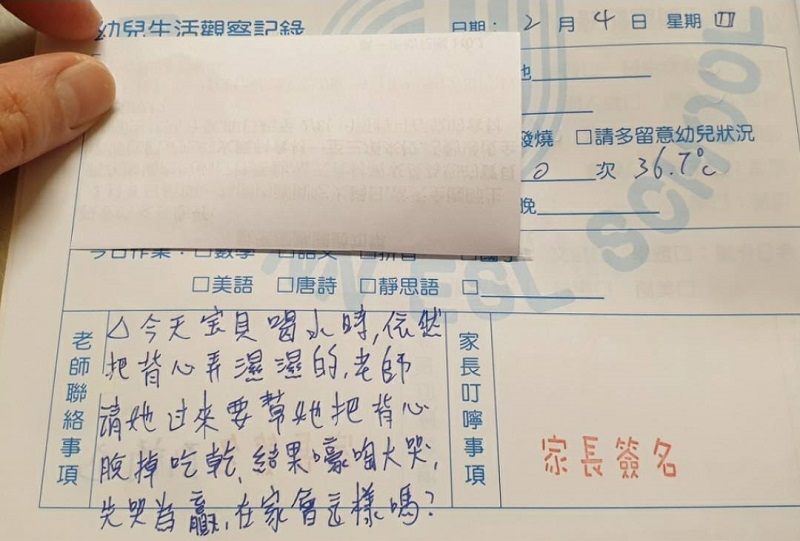 幼兒生活觀察記錄
日期：2月4日 星期四
他
發燒 □請多留意幼兒狀況
0 次 36.7℃
晚
今日作業：□數學 □語文 □拼音
□美語 □唐詩 □靜思語 □
老師聯絡事項
△今天宝貝喝水時,依然
把背心弄濕濕的,老師
請她过來要幫她把背心
脫掉吃乾,結果嚎啕大哭,
先哭為贏,在家會這樣嗎?
家長叮嚀事項
家長簽名
EGL SCHOOL